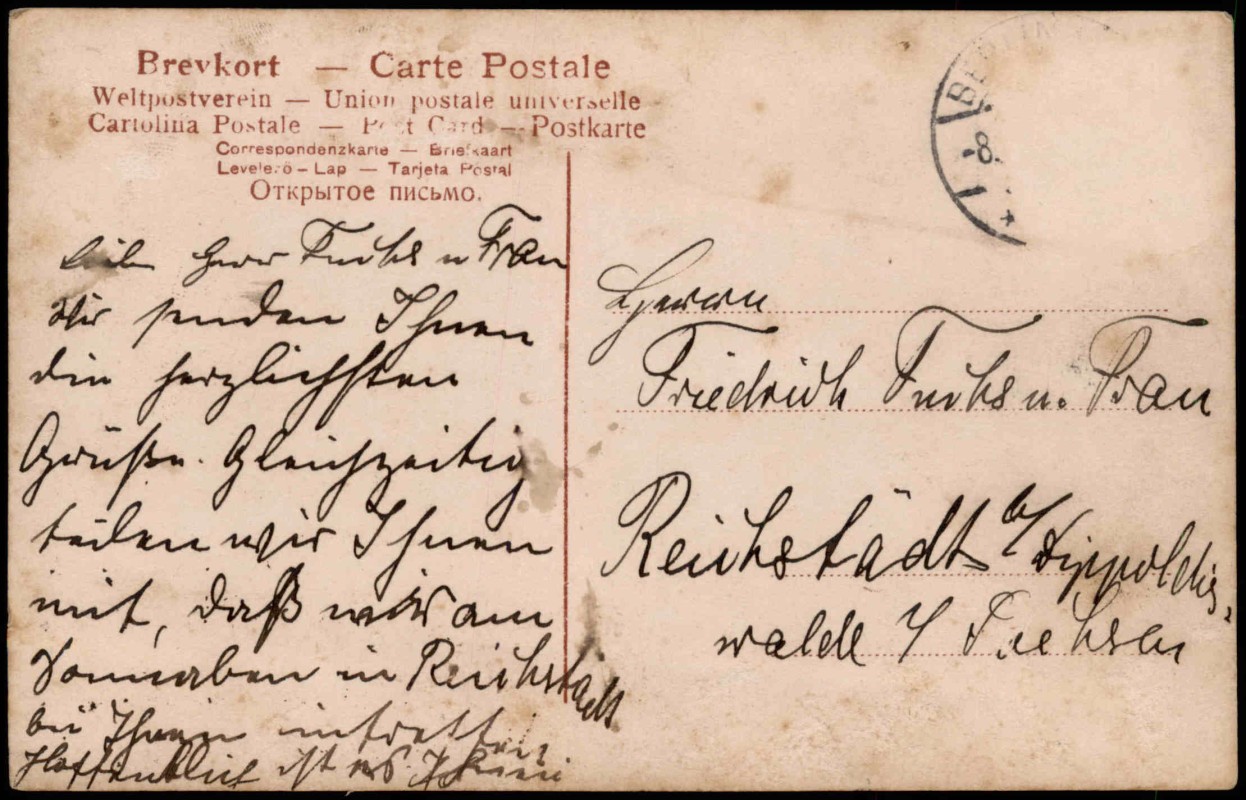 Brevkort — Carte Postale
Weltpostverein — Union postale universelle
Cartolina Postale — Post Card — Postkarte
Correspondenzkarte — Briefkaart
Levelező-Lap — Tarjeta Postal
Открытое письмо.
BERLIN
-8.
Liebe Herr Fuchs u Frau
Wir senden Ihnen
die herzlichsten
Grüße. Gleichzeitig
teilen wir Ihnen
mit, daß wir am
Sonnaben in Reichstädt
bei Ihnen eintreffen
Hoffentlich ist es Ihnen
Herrn
Friedrich Fuchs u. Frau
Reichstädt b/ Dippoldis-
walde i/ Sachsen